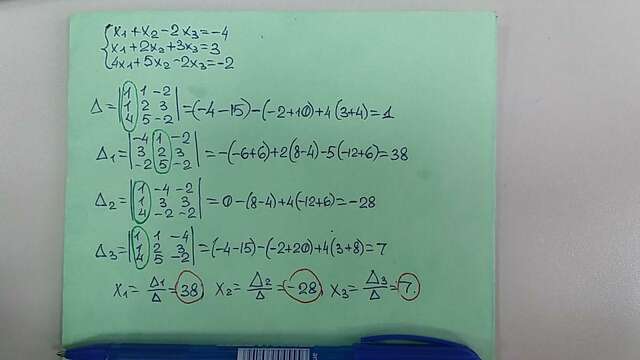 x1+x2-2x3=-4
x1+2x2+3x3=3
4x1+5x2-2x3=-2
Δ=|1 1 -2
1 2 3
4 5 -2|=(-4-15)-(-2+10)+4(3+4)=1
Δ1=|-4 1 -2
3 2 3
-2 5 -2|=-(-6+6)+2(8-4)-5(-12+6)=38
Δ2=|1 -4 -2
1 3 3
4 -2 -2|=0-(8-4)+4(-12+6)=-28
Δ3=|1 1 -4
1 2 3
4 5 -2|=(-4-15)-(-2+20)+4(3+8)=7
x1=Δ1/Δ=38, x2=Δ2/Δ=-28, x3=Δ3/Δ=7.